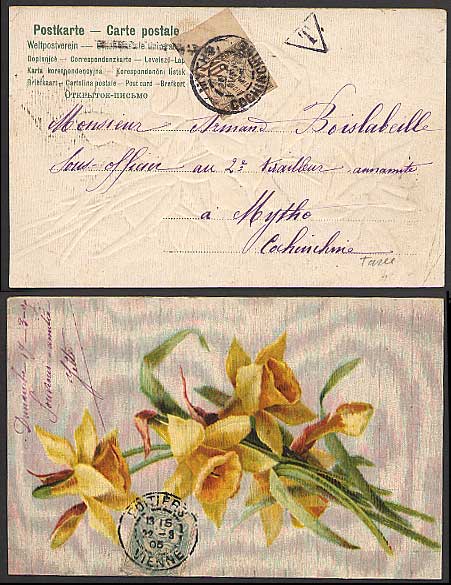 Postkarte — Carte postale
Weltpostverein —
Dopisnice — Correspondenzkarte — Levelező-Lap
Karta korespondencyjna — Korespondenční lístek
Briefkaart — Cartolina postale — Post card — Brefkort
Открытое письмо
T
Monsieur Armand Boislabeille
Sous officier au 2e tirailleur annamite
à Mytho
Cochinchine
Taxée
Dimanche 19-3-
Souvenir amitié
POITIERS
13 15
22-3
05
VIENNE